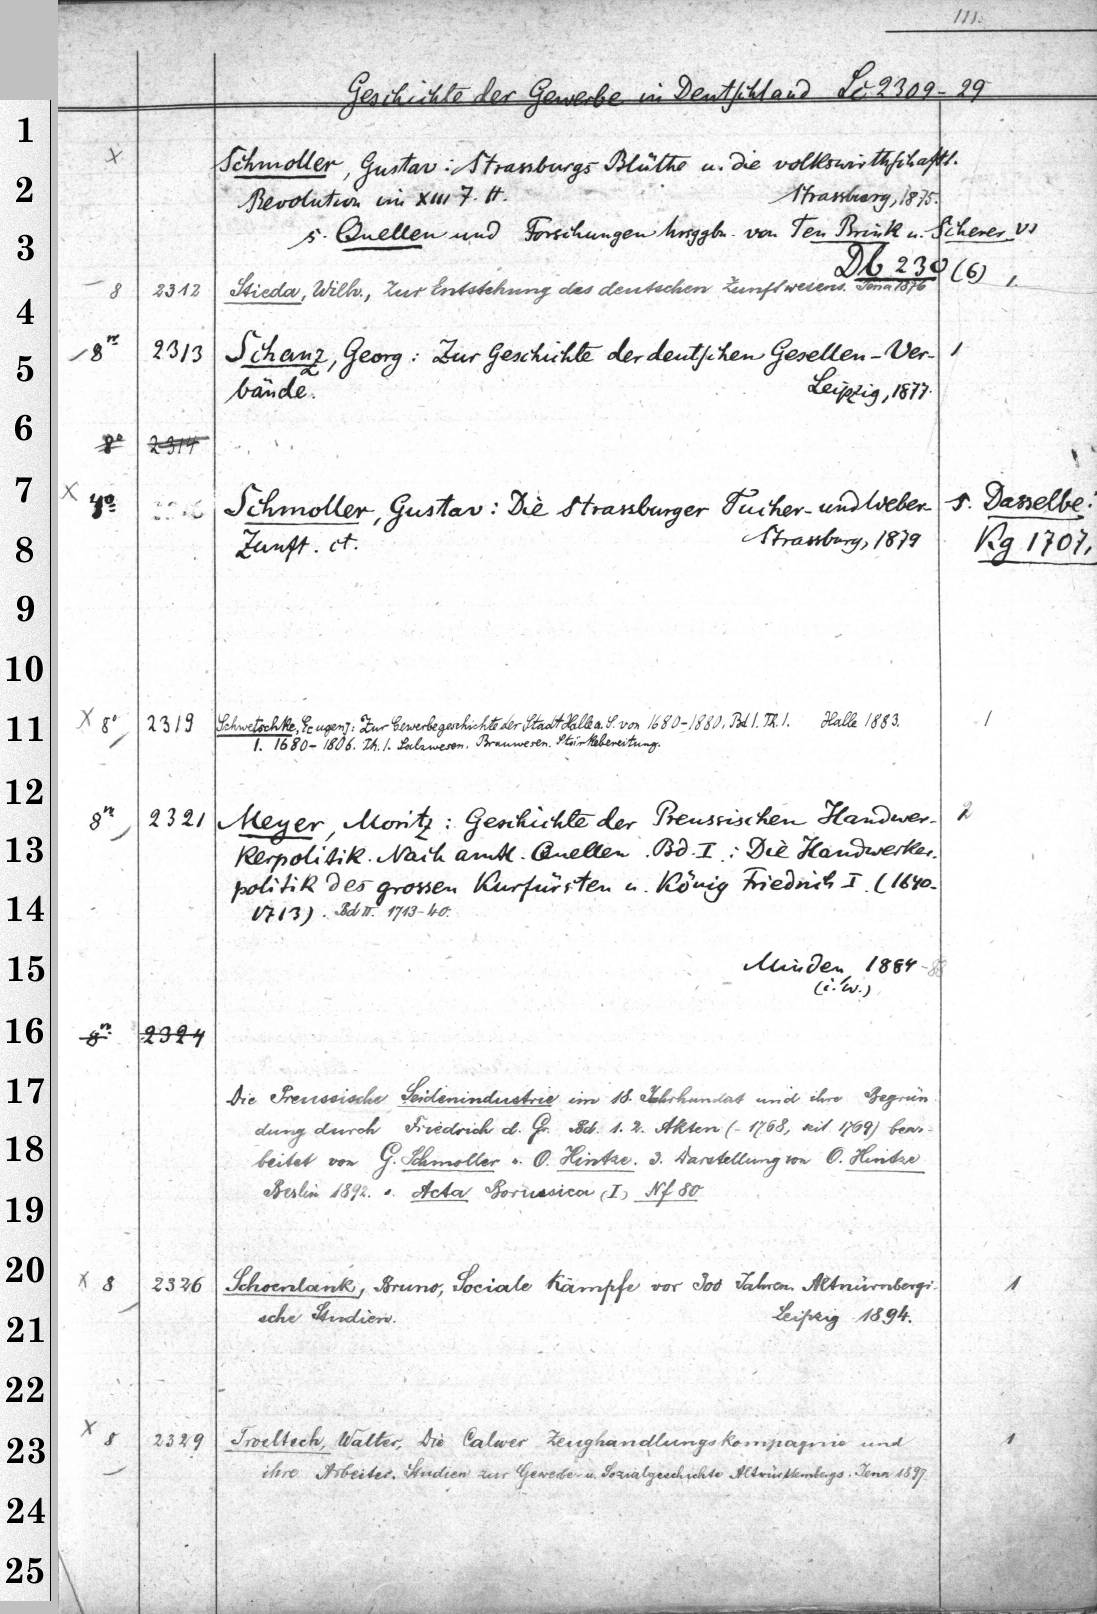 111.
Geschichte der Gewerbe in Deutschland Lc 2309-29
1
x Schmoller, Gustav: Strassburgs Blüthe u. die volkswirthschaftl.
2 Revolution im XIII J. H. Strassburg, 1875.
3 s. Quellen und Forschungen hrsggbn. von Ten Brink u. Scherer VI
Db 230 (6) 1.
8 2312 Stieda, Wilh., Zur Entstehung des deutschen Zunftwesens. Jena 1876
4
5 8º 2313 Schanz, Georg: Zur Geschichte der deutschen Gesellen-Ver- 1
bände. Leipzig, 1877.
6 8º 2314
7 x 4º Schmoller, Gustav: Die Strassburger Tucher- und Weber- s. Dasselbe:
8 Zunft. ct. Strassburg, 1879 Kg 1707.
9
10
11 x 8º 2319 Schwetschke, E[ugen]: Zur Gewerbegeschichte der Stadt Halle a. S. von 1680-1880. Bd 1. Th. 1. Halle 1883. 1
1. 1680-1806. Th. 1. Salzwesen. Brauwesen. Stärkebereitung.
12
8º 2321 Meyer, Moritz: Geschichte der Preussischen Handwer- 2
13 kerpolitik. Nach amtl. Quellen. Bd. I.: Die Handwerker-
politik des grossen Kurfürsten u. König Friedrich I. (1640-
14 1713). Bd II. 1713-40.
15 Minden, 1884-88
(i. W.)
16 8º 2324
17 Die Preussische Seidenindustrie im 18. Jahrhundert und ihre Begrün-
dung durch Friedrich d. Gr. Bd. 1. 2. Akten (-1768, seit 1769) bear-
18 beitet von G. Schmoller u. O. Hintze. 3. Darstellung von O. Hintze
19 Berlin 1892. s. Acta Borussica (I) Nf 80
20 x 8 2326 Schoenlank, Bruno, Sociale Kämpfe vor 300 Jahren. Altnürnbergi- 1
21 sche Studien. Leipzig 1894.
22
23 x 8 2329 Troeltsch, Walter, Die Calwer Zeughandlungskompagnie und 1
ihre Arbeiter. Studien zur Gewerbe- u. Sozialgeschichte Altwürttembergs. Jena 1897.
24
25